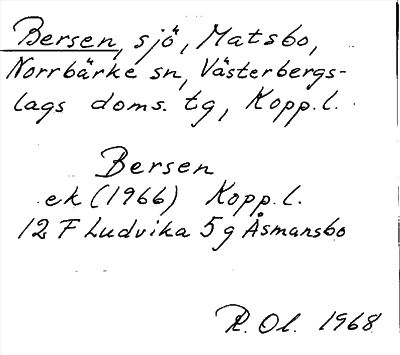 Bersen, sjö, Matsbo,
Norrbärke sn, Västerbergs-
lags doms. tg, Kopp. l.
Bersen
ek (1966) Kopp. l.
12 F Ludvika 5 g Åsmansbo
R. Ol. 1968